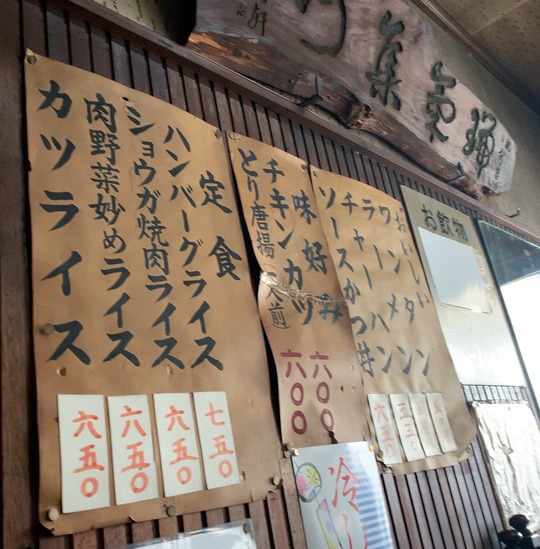 氣集
お飲物
おいしい
ワンタン
ラーメン
チャーハン
ソースかつ丼
六五〇
味好み
チキンカツ
六〇〇
とり唐揚(一人前)
六〇〇
定食
ハンバーグライス
七五〇
ショウガ焼肉ライス
六五〇
肉野菜妙めライス
六五〇
カツライス
六五〇
冷し